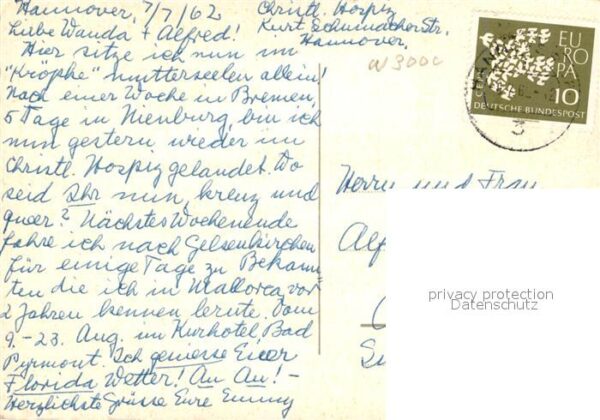 Hannover, 7/7/62
Christl. Hospiz
Kurt Schumacherstr.
Hannover.
Liebe Wanda + Alfred!
Hier sitze ich nun im
"Kröpke" mutterseelen allein!
Nach einer Woche in Bremen,
5 Tage in Nienburg, bin ich
nun gestern, wieder im
Christl. Hospiz gelandet. Wo
seid Ihr nun, kreuz und
queer? Nächstes Wochenende
fahre ich nach Gelsenkirchen
für einige Tage zu Bekann
ten die ich in Mallorca vor
2 Jahren kennen lernte. Vom
9.-23. Aug. im Kurhotel Bad
Pyrmont. Ich geniesse Euer
Florida Wetter! Au Au! -
Herzlichste Grüsse Eure Emmy
W 3000
EUROPA
CEPT
10
DEUTSCHE BUNDESPOST
3
Herrn und Frau
Alf
privacy protection
Datenschutz